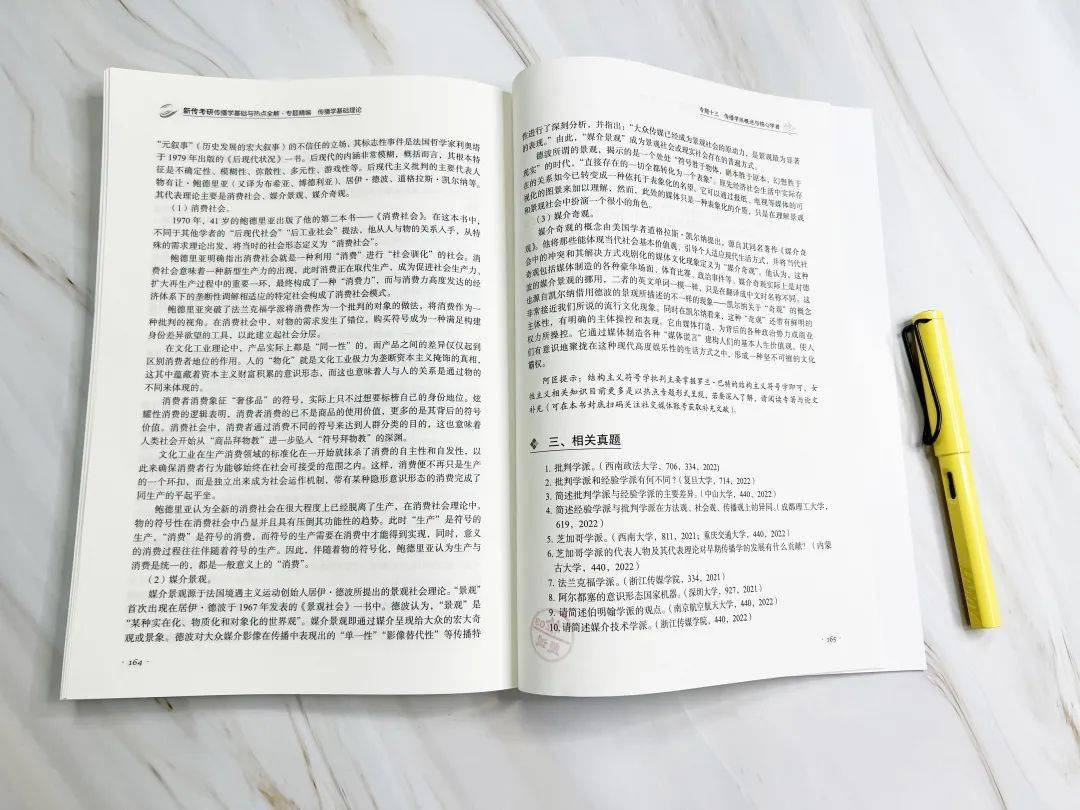 新传考研传播学基础与热点全解·专题精编 传播学基础理论
“元叙事”（历史发展的宏大叙事）的不信任的立场，其标志性事件是法国哲学家利奥塔
于 1979 年出版的《后现代状况》一书。后现代的内涵非常模糊，概括而言，其根本特
征是不确定性、模糊性、弥散性、多元性、游戏性等。后现代主义批判的主要代表人
物有让·鲍德里亚（又译为布希亚、博德利亚）、居伊·德波、道格拉斯·凯尔纳等。
其代表理论主要是消费社会、媒介景观、媒介奇观。
（1）消费社会。
1970 年，41 岁的鲍德里亚出版了他的第二本书——《消费社会》。在这本书中，
不同于其他学者的“后现代社会”“后工业社会”提法，他从人与物的关系入手，从特
殊的需求理论出发，将当时的社会形态定义为“消费社会”。
鲍德里亚明确指出消费社会就是一种利用“消费”进行“社会驯化”的社会。消
费社会意味着一种新型生产力的出现，此时消费正在取代生产，成为促进社会生产力、
扩大再生产过程中的重要一环，最终构成了一种“消费力”，而与消费力高度发达的经
济体系下的垄断性调解相适应的特定社会构成了消费社会模式。
鲍德里亚突破了法兰克福学派将消费作为一个批判的对象的做法，将消费作为一
种批判的视角。在消费社会中，对物的需求发生了错位，购买符号成为一种满足构建
身份差异欲望的工具，以此建立起社会分层。
在文化工业理论中，产品实际上都是“同一”性的，而产品之间的差异仅仅起到
区别消费者地位的作用。人的“物化”就是文化工业极力为垄断资本主义掩饰的真相，
这其中蕴藏着资本主义财富积累的意识形态，而这也意味着人与人的关系是通过物的
不同来体现的。
消费者消费象征“奢侈品”的符号，实际上只不过想要标榜自己的身份地位。炫
耀性消费的逻辑表明，消费者消费的已不是商品的使用价值，更多的是其背后的符号
价值。消费社会中，消费者通过消费不同的符号来达到人群分类的目的，这也意味着
人类社会开始从“商品拜物教”进一步坠入“符号拜物教”的深渊。
文化工业在生产消费领域的标准化在一开始就抹杀了消费的自主性和自发性，以
此来确保消费者行为能够始终在社会可接受的范围之内。这样，消费便不再只是生产
的一个环扣，而是独立出来成为社会运作机制，带有某种隐形意识形态的消费完成了
同生产的平起平坐。
鲍德里亚认为全新的消费社会在很大程度上已经脱离了生产，在消费社会理论中，
物的符号性在消费社会中凸显并且具有压倒其功能性的趋势。此时“生产”是符号的
生产，“消费”是符号的消费，而符号的生产需要在消费中才能得到实现，同时，意义
的消费过程往往伴随着符号的生产。因此，伴随着物的符号化，鲍德里亚认为生产与
消费是统一的，都是一般意义上的“消费”。
（2）媒介景观。
媒介景观源于法国境遇主义运动创始人居伊·德波所提出的景观社会理论。“景观”
首次出现在居伊·德波于 1967 年发表的《景观社会》一书中。德波认为，“景观”是
“某种实在化、物质化和对象化的世界观”。媒介景观即通过媒介呈现给大众的宏大奇
观或景象。德波对大众媒介影像在传播中表现出的“单一性”“影像替代性”等传播特
· 164 ·
专题十三 传播学派概述与核心学者
性进行了深刻分析，并指出：“大众传媒已经成为景观社会的原动力，是景观最为显著
的表现。”由此，“媒介景观”成为景观社会或现实社会存在的普遍方式。
德波所谓的景观，揭示的是一个处于“符号胜于物体，副本胜于原本，幻想胜于
现实”的时代，“直接存在的一切全都转化为一个表象”。原先经济社会生活中实际存
在的关系如今已转变成一种依托于表象化的名望。它可以通过报纸、电视等媒体的可
视化的图景来加以理解，然而，此处的媒体只是一种表象化的介质，只是在理解景观
和景观社会中扮演一个很小的角色。
（3）媒介奇观。
媒介奇观的概念由美国学者道格拉斯·凯尔纳提出，源自其同名著作《媒介奇
观》。他将那些能体现当代社会基本价值观、引导个人适应现代生活方式，并将当代社
会中的冲突和其解决方式戏剧化的媒体文化现象定义为“媒介奇观”。他认为，这种
奇观包括媒体制造的各种豪华场面、体育比赛、政治事件等。媒介奇观实际上是对德
波的媒介景观的挪用，二者的英文单词一模一样，只是在翻译成中文时名称不同。这
也源自凯尔纳借用德波的景观所描述的不一样的现象——凯尔纳关于“奇观”的概念
非常接近我们所说的流行文化现象。同时在凯尔纳看来，这种“奇观”还带有鲜明的
主体性，有明确的主体操控和表现。它由媒体打造，为背后的各种政治势力或商业
权力所操控。它通过媒体制造各种“媒体谎言”建构人们的基本人生价值观，使人
们有意识地聚拢在这种现代高度娱乐性的生活方式之中，形成一种坚不可摧的文化
霸权。
阿匠提示：结构主义符号学批判主要掌握罗兰·巴特的结构主义符号学即可。女
性主义相关知识目前更多是以热点专题形式呈现，若要深入了解，请阅读专著与论文
补充（可在本书封底扫码关注社交媒体账号获取补充文献）。
三、相关真题
1. 批判学派。（西南政法大学，706，334，2022）
2. 批判学派和经验学派有何不同？（复旦大学，714，2022）
3. 简述批判学派与经验学派的主要差异。（中山大学，440，2022）
4. 简述经验学派与批判学派在方法观、社会观、传播观上的异同。（成都理工大学，
619，2022）
5. 芝加哥学派。（西南大学，811，2021；重庆交通大学，440，2022）
6. 芝加哥学派的代表人物及其代表理论对早期传播学的发展有什么贡献？（内蒙
古大学，440，2022）
7. 法兰克福学派。（浙江传媒学院，334，2021）
8. 阿尔都塞的意识形态国家机器。（深圳大学，927，2021）
9. 请简述伯明翰学派的观点。（南京航空航天大学，440，2022）
10. 请简述媒介技术学派。（浙江传媒学院，440，2022）
· 165 ·